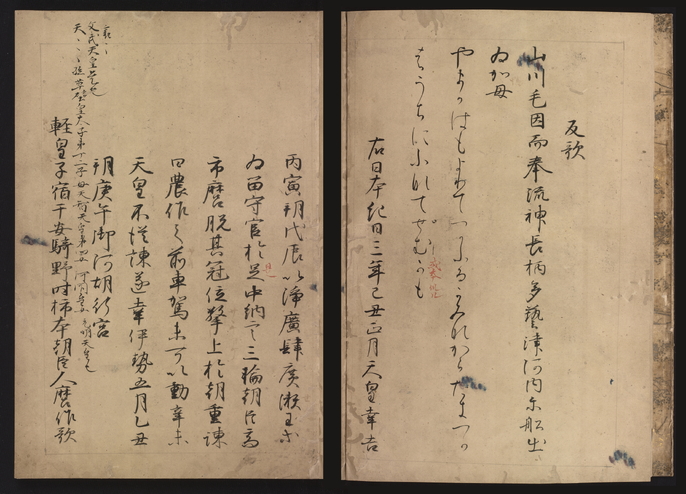 反歌
山川毛因而奉流神長柄多藝津河内尓船出
為加母
やまかはもよりてつかふるかみのからたきつか
はうちにふなてせむかも
右日本紀曰三年己丑正月天皇幸吉
丙寅朔戊辰以浄廣肆廣瀬王等
為留守官於是中納言三輪朝臣高
市麿脱其冠位擎上於朝重諫
曰農作之前車駕未可以動辛未
天皇不従諫遂幸伊勢五月乙丑
朔庚午御阿胡行宮
文武天皇是也
軽皇子宿于安騎野時柿本朝臣人麿作歌